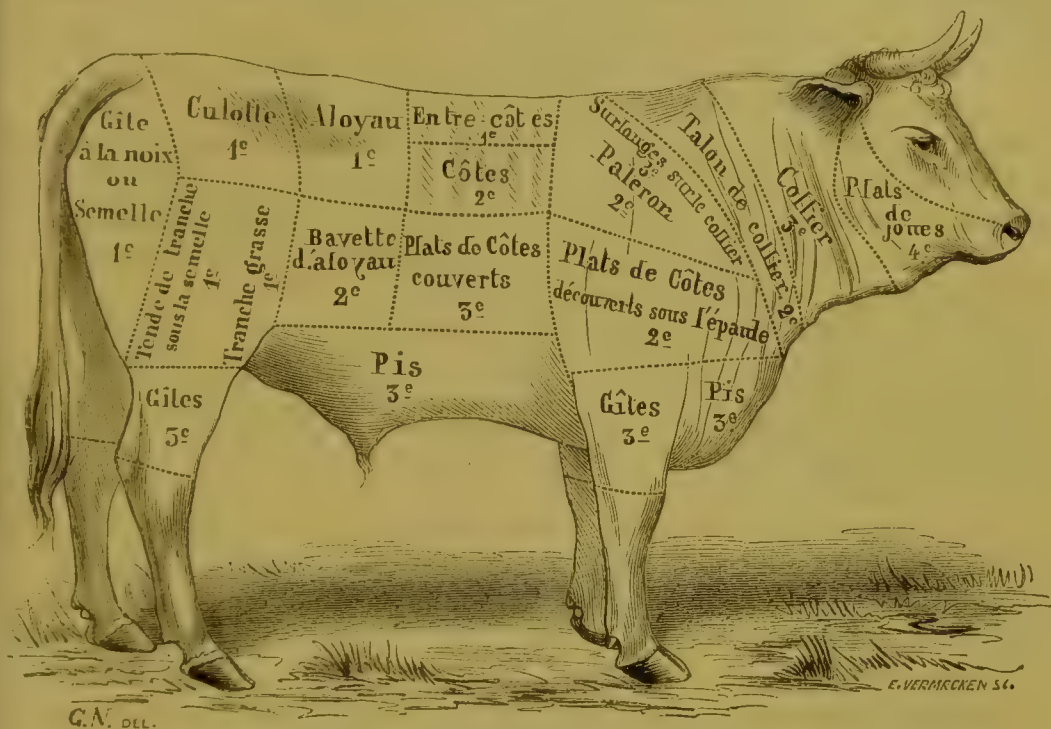 Gîte
à la noix
ou
Semelle
1e
Culotte
1e
Aloyau
1e
Entre-côtes
1e
Côtes
2e
Surlonges sur le collier
3e
Paleron
2e
Talon de collier 2e
Collier
3e
Plats
de
joues
4e
Tende de tranche
sous la semelle
1e
Tranche grasse
1e
Bavette
d'aloyau
2e
Plats de Côtes
couverts
3e
Plats de Côtes
découverts sous l'épaule
2e
Pis
3e
Gîtes
3e
Gîtes
3e
Pis
3e
E. VERMRCKEN SC.
G.N. DEL.